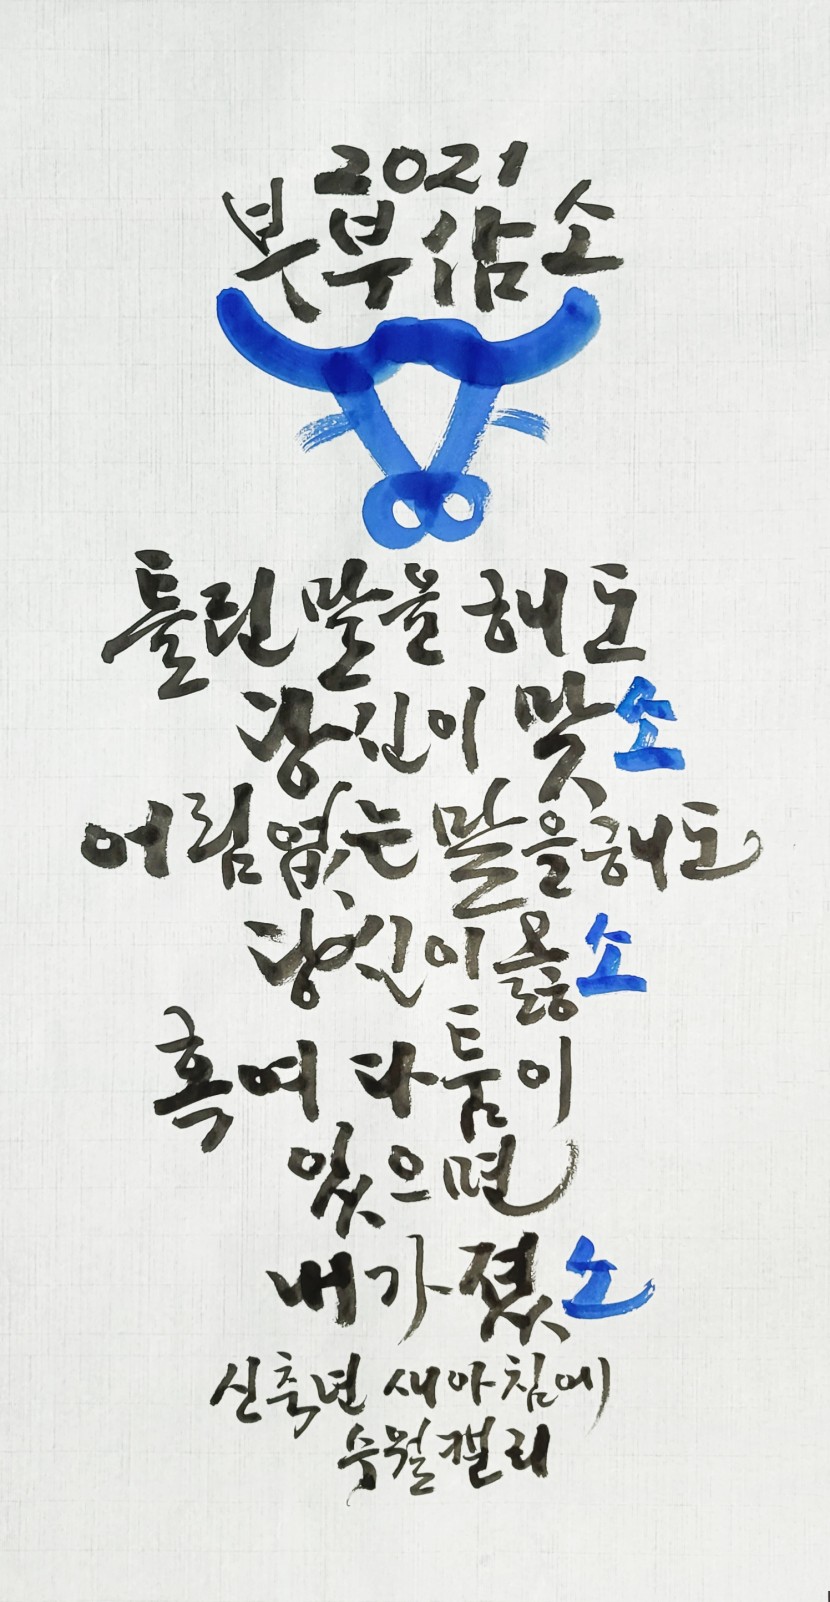 2021
부부삼소
틀린 말을 해도
당신이 맞소
어림없는 말을 해도
당신이 옳소
혹여 다툼이
있으면
내가 졌소
신축년 새아침에
수월캘리